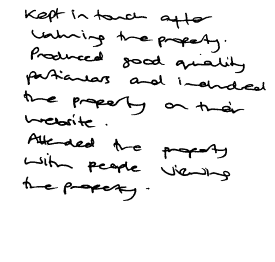 Kept in touch after
valuing the property.
Produced good quality
particulars and included
the property on their
website.
Attended the property
with people viewing
the property.